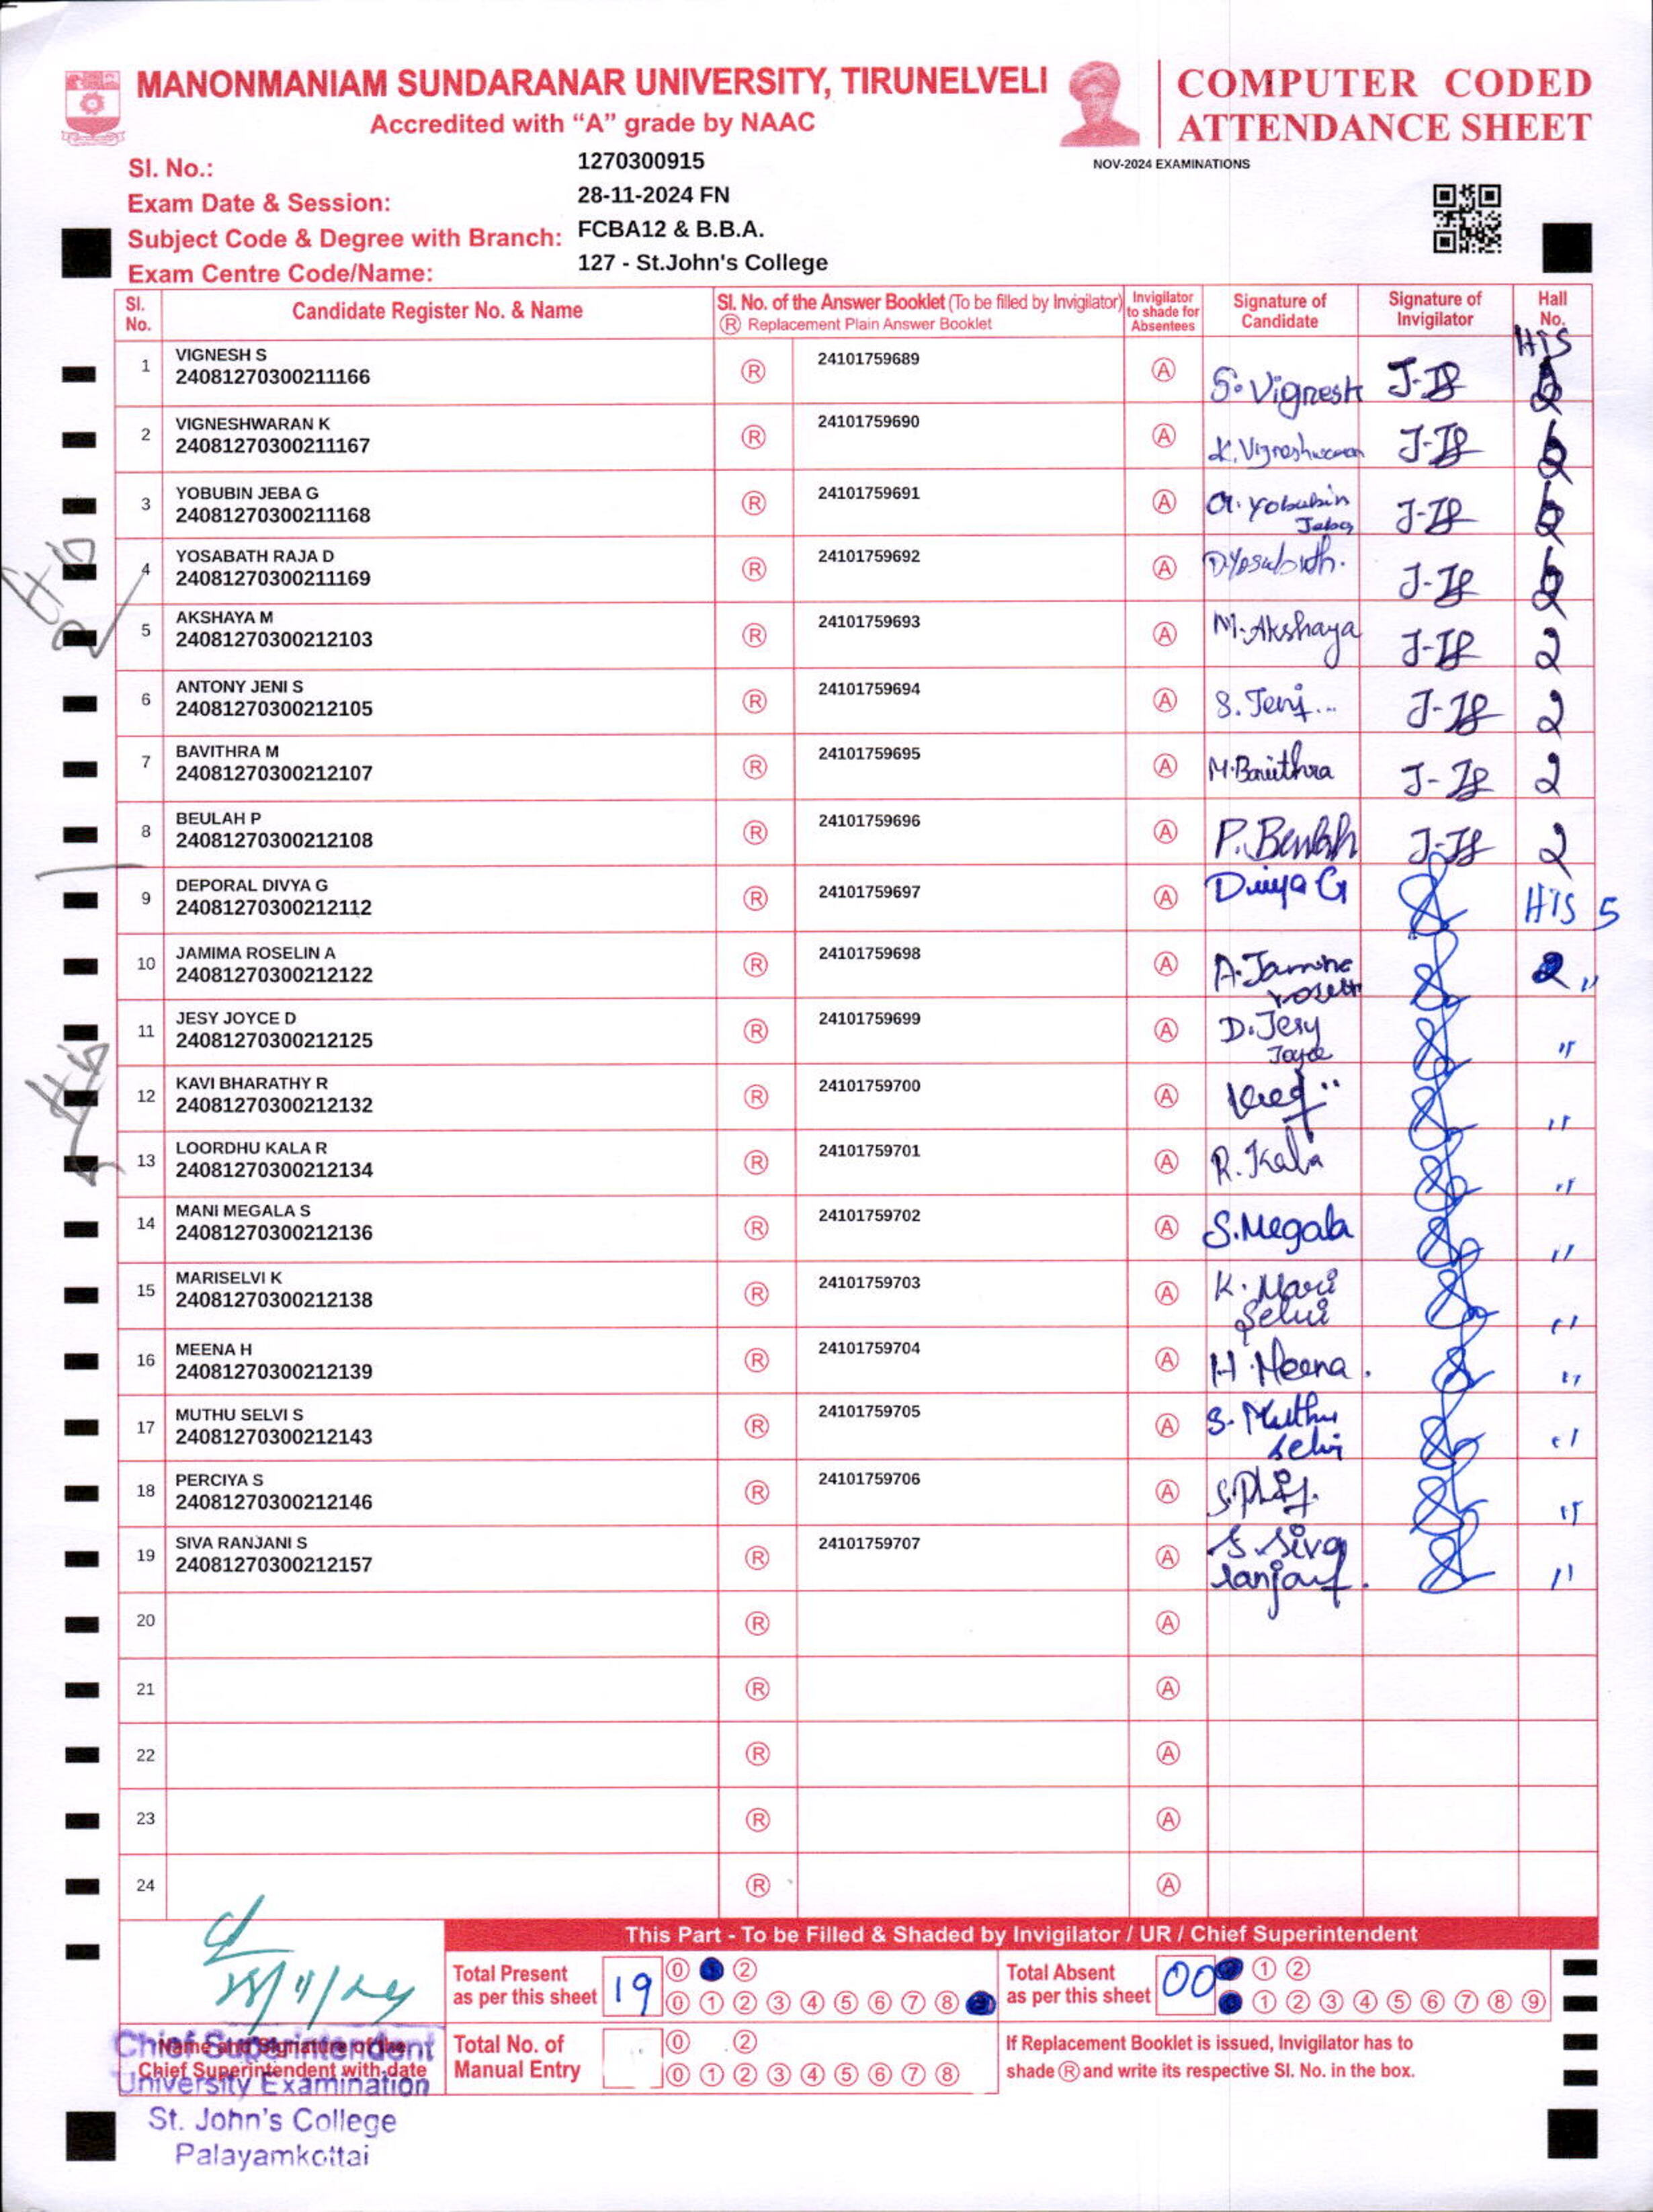 MANONMANIAM SUNDARANAR UNIVERSITY, TIRUNELVELI
Accredited with “A” grade by NAAC
COMPUTER CODED
ATTENDANCE SHEET
NOV-2024 EXAMINATIONS
Sl. No.: 1270300915
Exam Date & Session: 28-11-2024 FN
Subject Code & Degree with Branch: FCBA12 & B.B.A.
Exam Centre Code/Name: 127 - St.John's College
Sl. No. Candidate Register No. & Name Sl. No. of the Answer Booklet (To be filled by Invigilator) Ⓡ Replacement Plain Answer Booklet Invigilator to shade for Absentees Signature of Candidate Signature of Invigilator Hall No.
HIS
1 VIGNESH S 24081270300211166 Ⓡ 24101759689 Ⓐ S. Vignesh
2 VIGNESHWARAN K 24081270300211167 Ⓡ 24101759690 Ⓐ K. Vigneshwaran
3 YOBUBIN JEBA G 24081270300211168 Ⓡ 24101759691 Ⓐ G. Yobubin Jeba
4 YOSABATH RAJA D 24081270300211169 Ⓡ 24101759692 Ⓐ D.Yosabath.
5 AKSHAYA M 24081270300212103 Ⓡ 24101759693 Ⓐ M.Akshaya 2
6 ANTONY JENI S 24081270300212105 Ⓡ 24101759694 Ⓐ S. Jeni... 2
7 BAVITHRA M 24081270300212107 Ⓡ 24101759695 Ⓐ M.Bavithra 2
8 BEULAH P 24081270300212108 Ⓡ 24101759696 Ⓐ P. Beulah 2
9 DEPORAL DIVYA G 24081270300212112 Ⓡ 24101759697 Ⓐ Divya G HIS 5
10 JAMIMA ROSELIN A 24081270300212122 Ⓡ 24101759698 Ⓐ A. Jamima "
11 JESY JOYCE D 24081270300212125 Ⓡ 24101759699 Ⓐ D. Jesy Joyce "
12 KAVI BHARATHY R 24081270300212132 Ⓡ 24101759700 Ⓐ "
13 LOORDHU KALA R 24081270300212134 Ⓡ 24101759701 Ⓐ R. Kala "
14 MANI MEGALA S 24081270300212136 Ⓡ 24101759702 Ⓐ S.Megala "
15 MARISELVI K 24081270300212138 Ⓡ 24101759703 Ⓐ K. Mari Selvi "
16 MEENA H 24081270300212139 Ⓡ 24101759704 Ⓐ H. Meena. "
17 MUTHU SELVI S 24081270300212143 Ⓡ 24101759705 Ⓐ S. Muthu selvi "
18 PERCIYA S 24081270300212146 Ⓡ 24101759706 Ⓐ "
19 SIVA RANJANI S 24081270300212157 Ⓡ 24101759707 Ⓐ S Siva ranjani. "
20 Ⓡ Ⓐ
21 Ⓡ Ⓐ
22 Ⓡ Ⓐ
23 Ⓡ Ⓐ
24 Ⓡ Ⓐ
This Part - To be Filled & Shaded by Invigilator / UR / Chief Superintendent
Total Present as per this sheet 19 0 2
0 1 2 3 4 5 6 7 8
Total Absent as per this sheet 00 1 2
1 2 3 4 5 6 7 8 9
28/11/24
Total No. of Manual Entry 0 2
0 1 2 3 4 5 6 7 8
If Replacement Booklet is issued, Invigilator has to
shade Ⓡ and write its respective Sl. No. in the box.
Name and Signature of the
Chief Superintendent with date
Chief Superintendent
University Examination
St. John's College
Palayamkottai